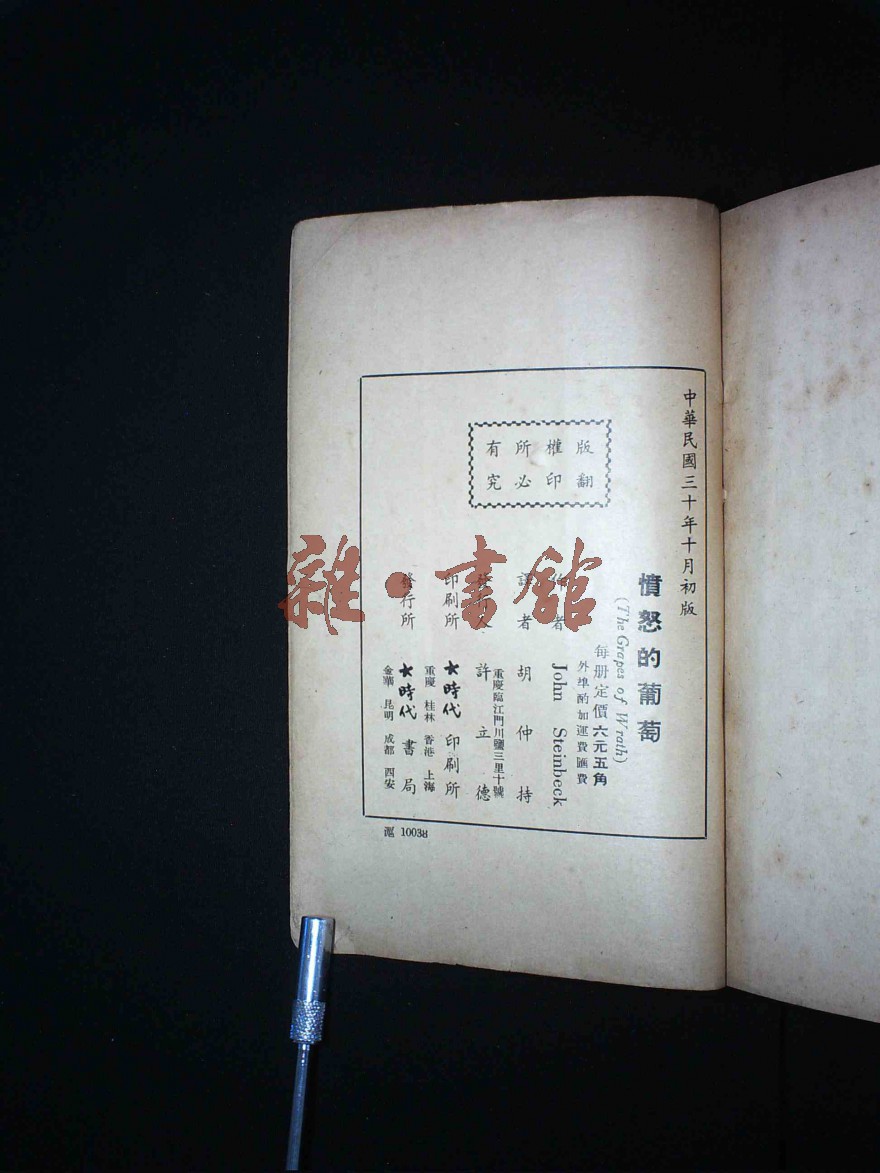 中華民國三十年十月初版
憤怒的葡萄
(The Grapes of Wrath)
每册定價六元五角
外埠酌加運費匯費
版權所有
翻印必究
作者 John Steinbeck
譯者 胡仲持
發行人 許立德
重慶臨江門川鹽三里十號
印刷所 大時代印刷所
發行所 大時代書局
重慶 桂林 香港 上海
金華 昆明 成都 西安
滬 10038
雜·書館